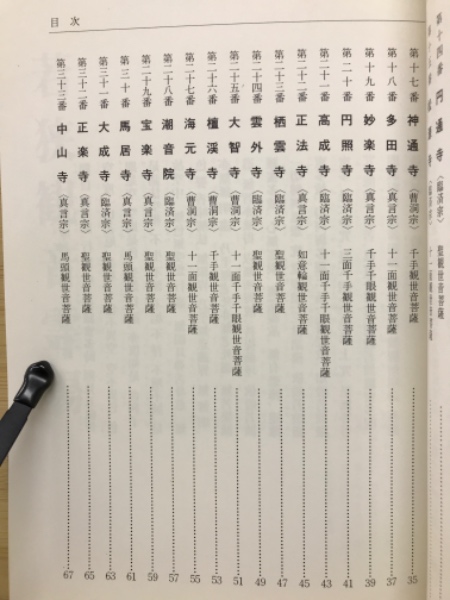 第十四番 円通寺〈臨済宗〉 聖観世音菩薩
目次
第十七番 神通寺〈曹洞宗〉 千手観世音菩薩 35
第十八番 多田寺〈真言宗〉 十一面観世音菩薩 37
第十九番 妙楽寺〈真言宗〉 千手千眼観世音菩薩 39
第二十番 円照寺〈臨済宗〉 三面千手観世音菩薩 41
第二十一番 高成寺〈臨済宗〉 十一面千手千眼観世音菩薩 43
第二十二番 正法寺〈真言宗〉 如意輪観世音菩薩 45
第二十三番 栖雲寺〈臨済宗〉 聖観世音菩薩 47
第二十四番 雲外寺〈臨済宗〉 聖観世音菩薩 49
第二十五番 大智寺〈曹洞宗〉 十一面千手千眼観世音菩薩 51
第二十六番 檀渓寺〈曹洞宗〉 千手観世音菩薩 53
第二十七番 海元寺〈曹洞宗〉 十一面観世音菩薩 55
第二十八番 潮音院〈臨済宗〉 聖観世音菩薩 57
第二十九番 宝楽寺〈真言宗〉 聖観世音菩薩 59
第三十番 馬居寺〈真言宗〉 馬頭観世音菩薩 61
第三十一番 大成寺〈臨済宗〉 聖観世音菩薩 63
第三十二番 正楽寺〈真言宗〉 聖観世音菩薩 65
第三十三番 中山寺〈真言宗〉 馬頭観世音菩薩 67